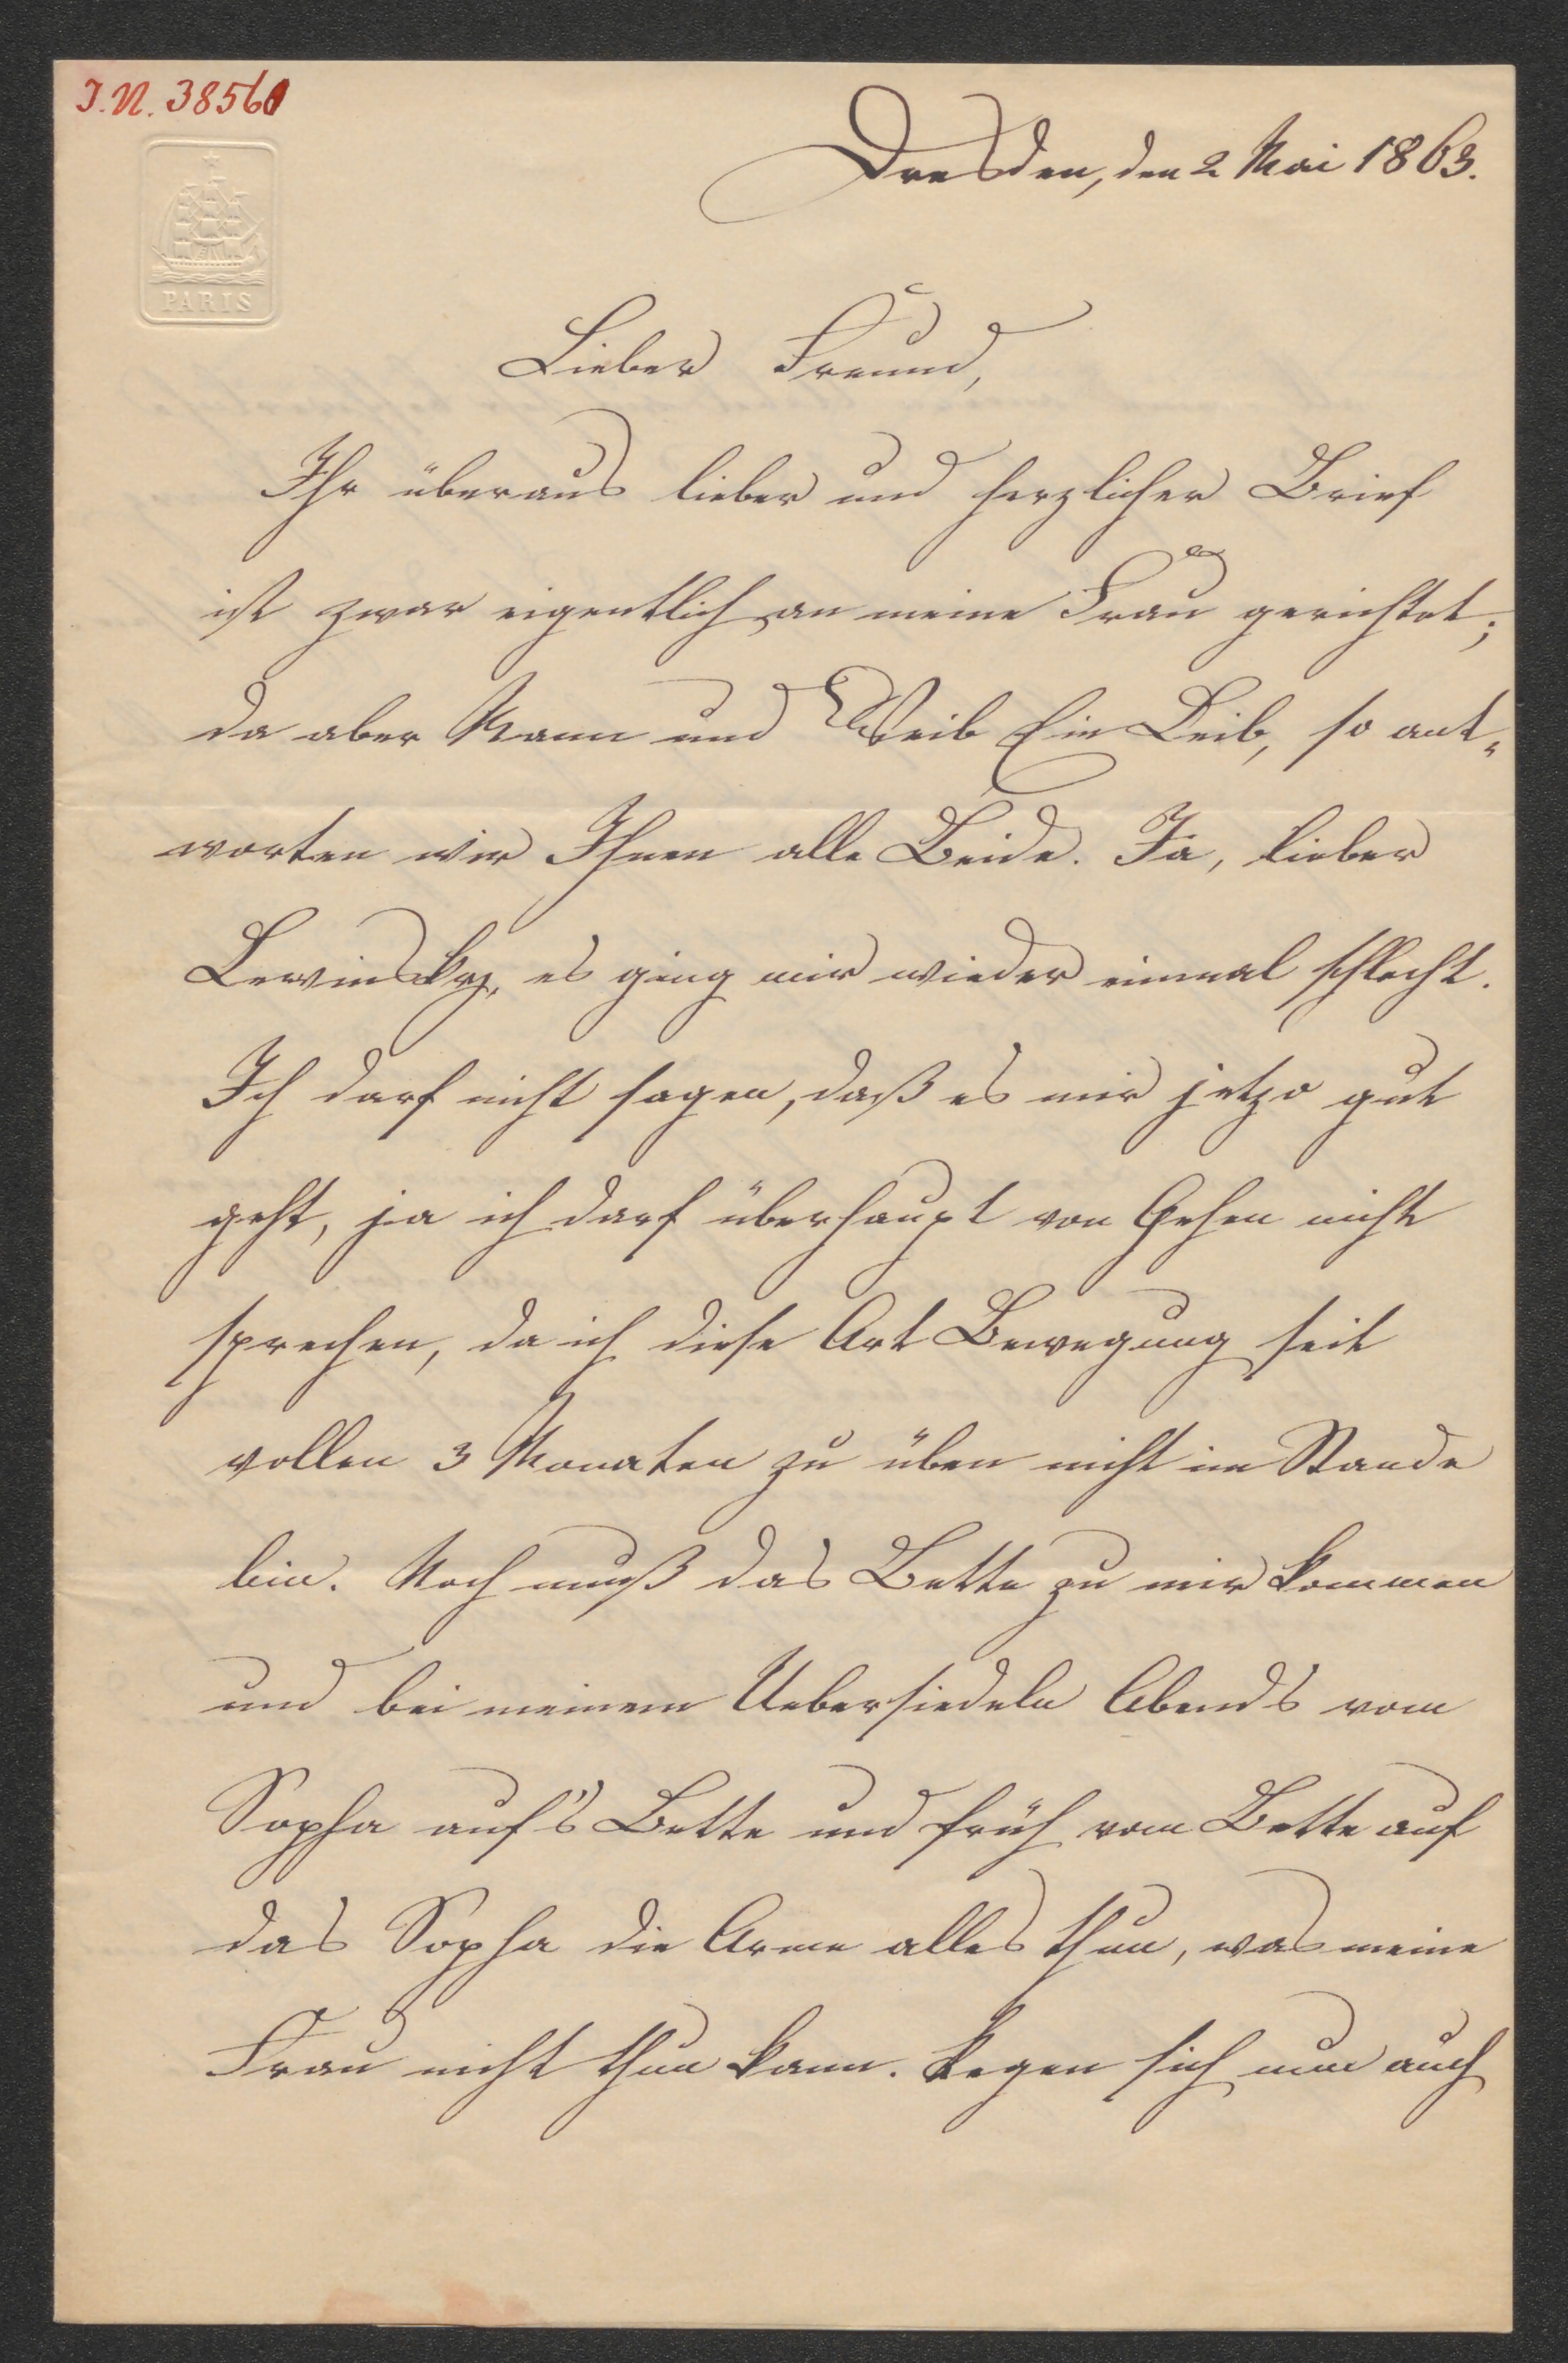 I.N. 38560
PARIS
Dresden, den 2 Mai 1863.
Lieber Freund,
Ihr überaus lieber und herzlicher Brief
ist zwar eigentlich an meine Frau gerichtet;
da aber Mann und Weib Ein Leib, so ant„
worten wir Ihnen alle Beide. Ja, lieber
Lewinsky, es ging mir wieder einmal schlecht.
Ich darf nicht sagen, daß es mir jetzo gut
geht, ja ich darf überhaupt von Gehen nicht
sprechen, da ich diese Art Bewegung seit
vollen 3 Monaten zu üben nicht im Stande
bin. Noch muß das Bette zu mir kommen
und bei meinem Uebersiedeln Abends vom
Sopha auf's Bette und früh vom Bette auf
das Sopha die Arme alles thun, was meine
Frau nicht thun kann. Regen sich nun auch